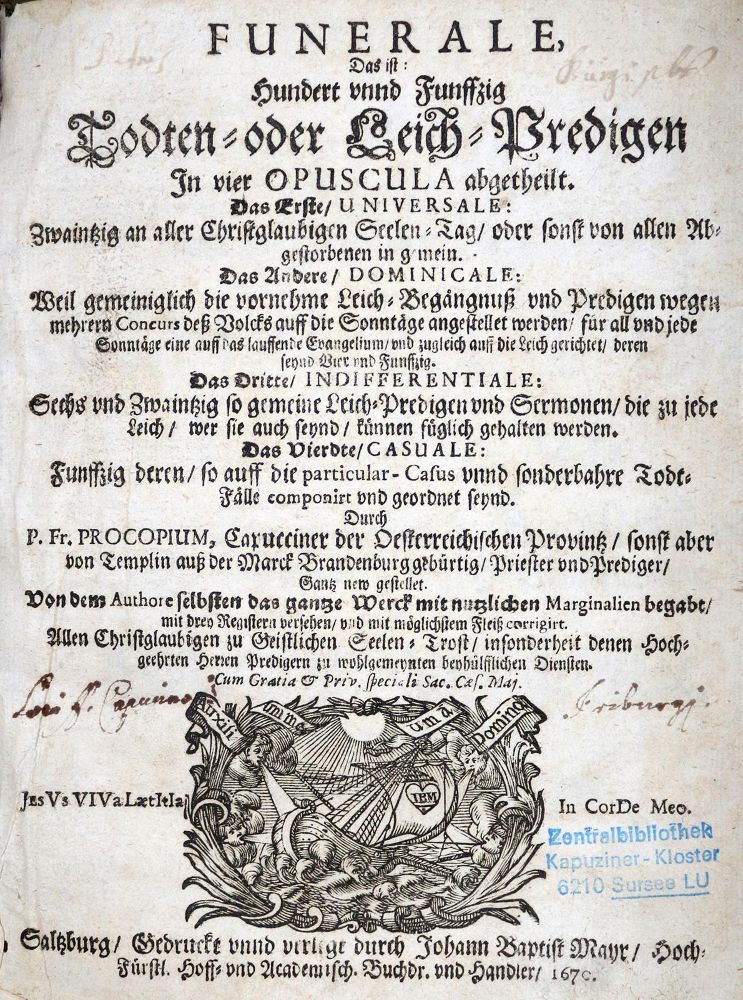 FUNERALE,
Das ist:
Hundert vnnd Funffzig
Todten-oder Leich-Predigen
In vier OPUSCULA abgetheilt.
Das Erste/ UNIVERSALE:
Zwaintzig an aller Christglaubigen Seelen-Tag/ oder sonst von allen Ab-
gestorbenen in gmein.
Das Andere/ DOMINICALE:
Weil gemeiniglich die vornehme Leich-Begängnuß vnd Predigen wegen
mehrern Concurs deß Volcks auff die Sonntäge angestellet werden/ für all vnd jede
Sonntäge eine auff das lauffende Evangelium/ vnd zugleich auff die Leich gerichtet/ deren
seynd Vier vnd Funffzig.
Das Dritte/ INDIFFERENTIALE:
Sechs vnd Zwaintzig so gemeine Leich-Predigen vnd Sermonen/ die zu jede
Leich/ wer sie auch seynd/ können füglich gehalten werden.
Das Vierdte/ CASUALE:
Funffzig deren/ so auff die particular-Casus vnnd sonderbahre Todt-
Fälle componirt vnd geordnet seynd.
Durch
P. Fr. PROCOPIUM, Capucciner der Oesterreichischen Provintz/ sonst aber
von Templin auß der Marck Brandenburg gebürtig/ Priester vnd Prediger/
Gantz new gestellet.
Von dem Authore selbsten das gantze Werck mit nutzlichen Marginalien begabt/
mit drey Registern versehen/ vnd mit möglichstem Fleiß corrigirt.
Allen Christglaubigen zu Geistlichen Seelen-Trost/ insonderheit denen Hoch-
geehrten Herren Predigern zu wohlgemeynten beyhülfflichen Diensten.
Cum Gratia & Priv. speciali Sac. Cæs. Maj.
Friburgi.
Auxili um me um à Domino
IBM
JesVs VIVa LætItIa In CorDe Meo.
Zentralbibliothek
Kapuziner-Kloster
6210 Sursee LU
Saltzburg/ Gedruckt vnnd verlegt durch Johann Baptist Mayr/ Hoch-
Fürstl. Hoff- vnd Academisch. Buchdr. vnd Handler/ 1670.